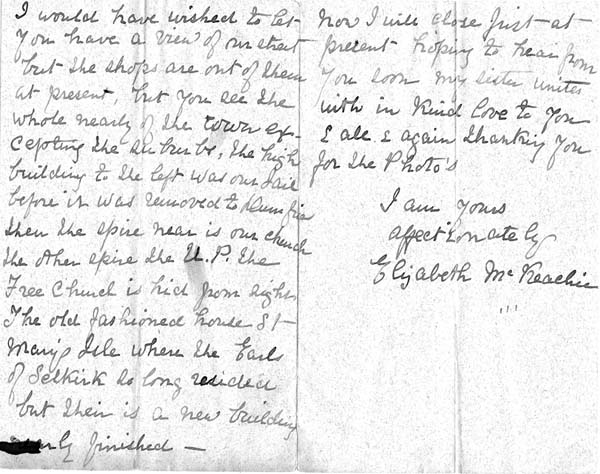 I would have wished to let
you have a view of our street
but the shops are out of them
at present, but you see the
whole nearly of the town ex-
cepting the suburbs, the high
building to the left was our Jail
before it was removed to Dumfries
then the spire near is our church
the other spire the U.P. the
Free Church is hid from sight
The old fashioned house St
Mary's Isle where the Earls
of Selkirk so long resided
but their is a new building
nearly finished —
Now I will close just at
present hoping to hear from
you soon my sister unites
with in kind love to you
& all & again thanking you
for the Photo's
I am yours
affectionately
Elizabeth McKeachie